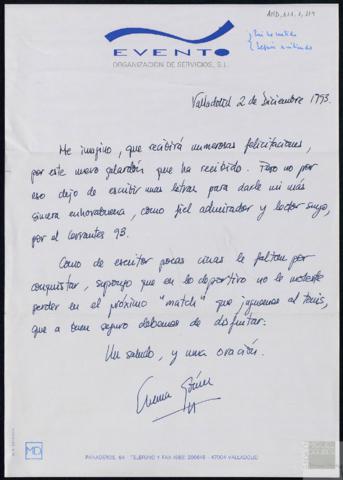 EVENTO
ORGANIZACION DE SERVICIOS, S.L.
Valladolid 2 de Diciembre 1993.
Me imagino, que recibirá numerosas felicitaciones,
por este nuevo galardón que ha recibido. Pero no por
eso dejo de escribir unas letras para darle mi más
sincera enhorabuena, como fiel admirador y lector suyo,
por el Cervantes 93.
Como de escritor pocas cimas le faltan por
conquistar, supongo que en lo deportivo no le moleste
perder en el próximo "match" que juguemos al tenis,
que a buen seguro debamos de disfrutar.
Un saludo, y una oración.
MD
PANADEROS, 64 - TELEFONO Y FAX (983) 200645 - 47004 VALLADOLID